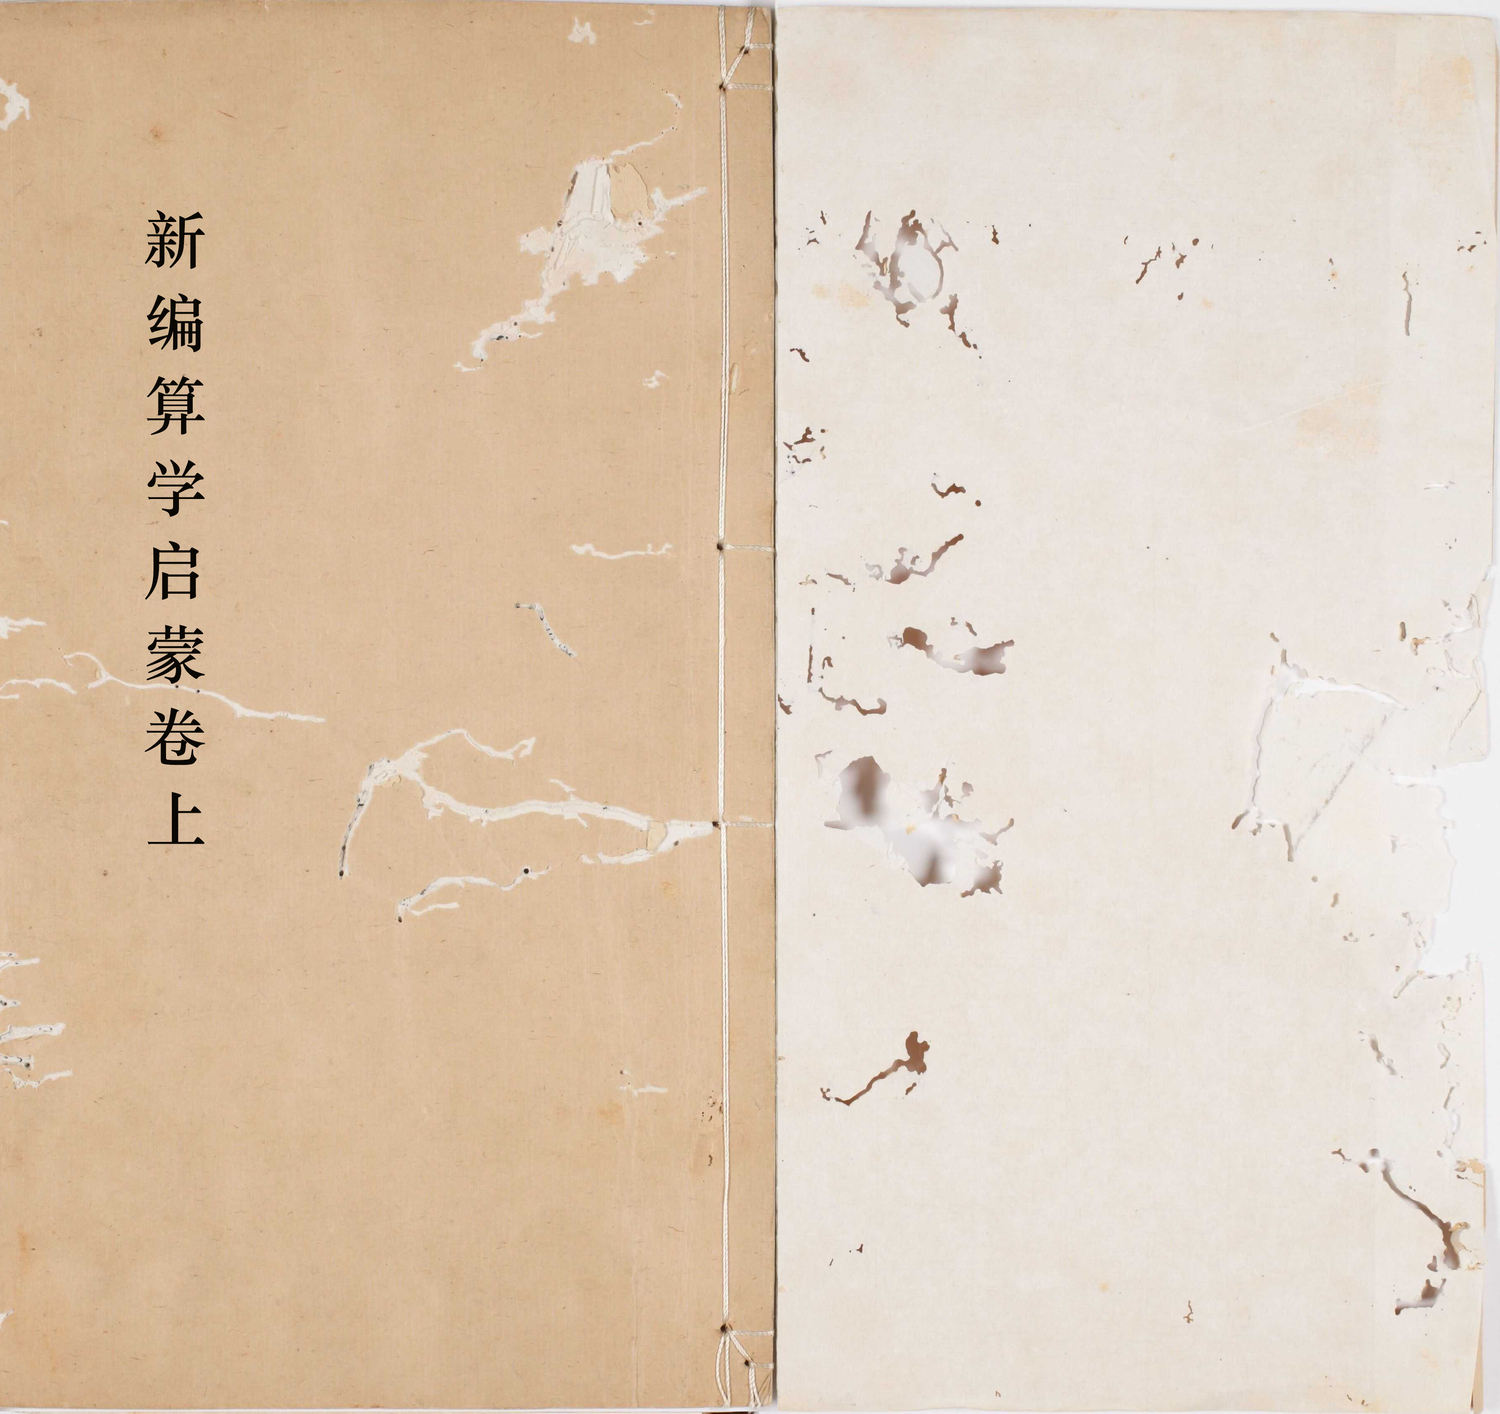 新编算学启蒙卷上